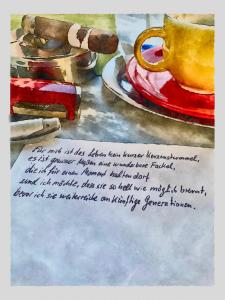 Für mich ist das Leben kein kurzer Kerzenstummel,
es ist genauer eine wunderbare Fackel,
die ich für einen Moment halten darf
und ich möchte, dass sie so hell wie möglich brennt,
bevor ich sie weiterreiche an künftige Generationen.